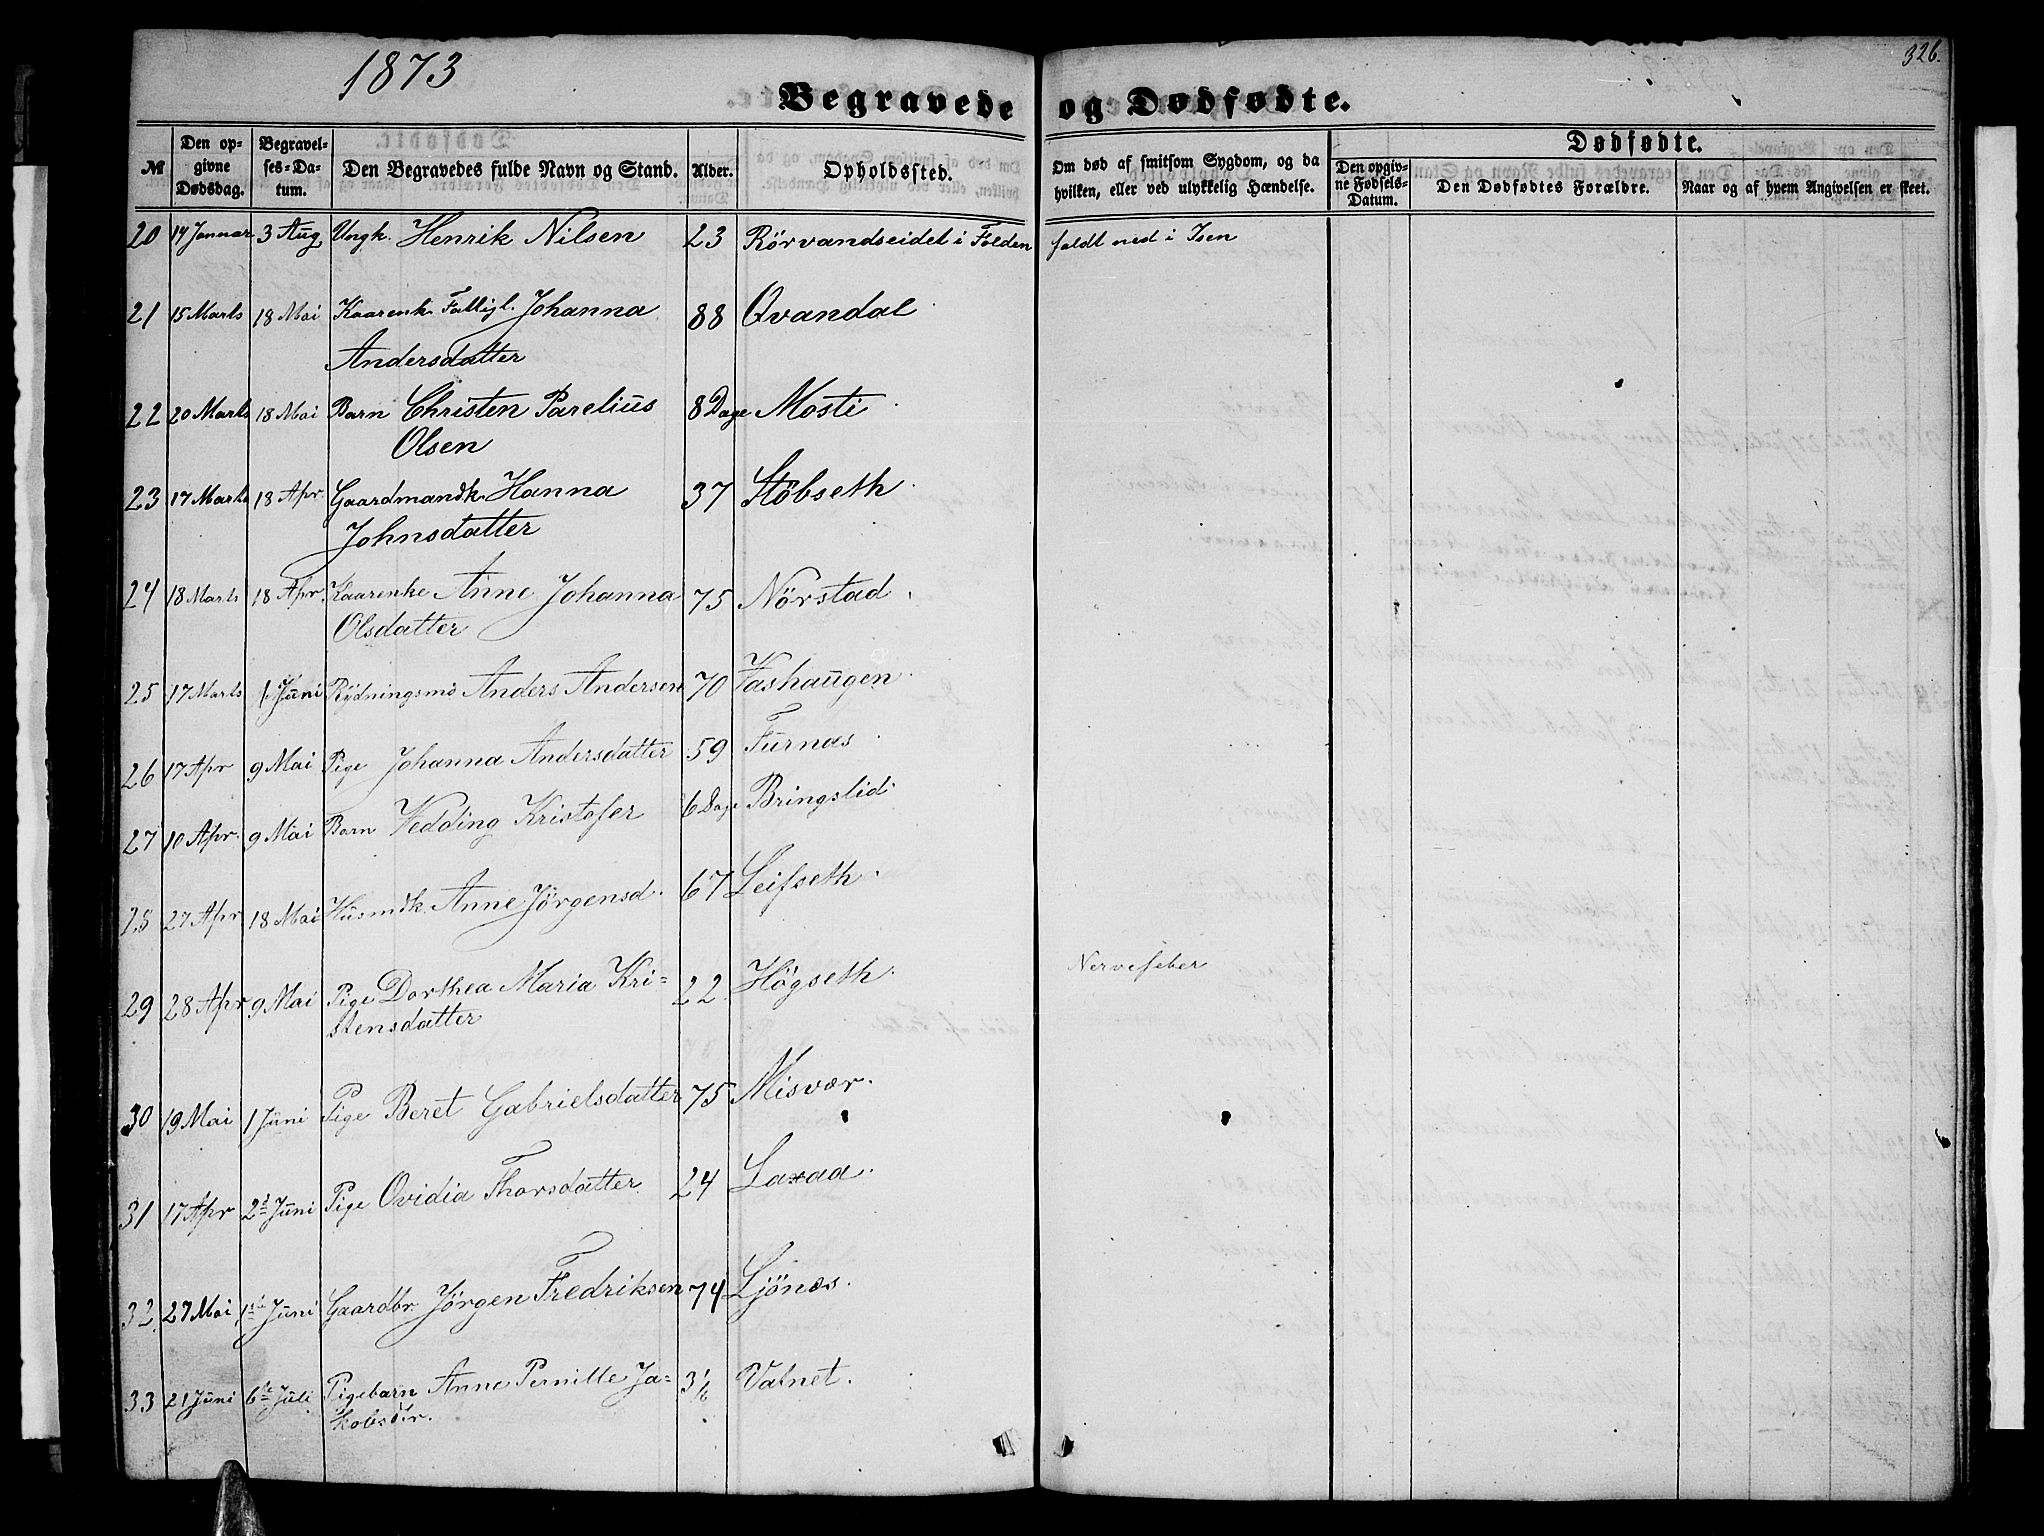 1873
326.
Begravede og Dødfødte.
№
Den opgivne Dødsdag.
Begravelses-Datum.
Den Begravedes fulde Navn og Stand.
Alder.
Opholdssted.
Om død af smitsom Sygdom, og da hvilken, eller ved ulykkelig Hændelse.
Dødfødte.
Den opgivne Fødsels-Datum.
Den Dødfødtes Forældre.
Naar og af hvem Angivelsen er skeet.
20 14 Januar 3 Aug Ungk. Henrik Nilsen 23 Rörvandseidet i Folden faldt ned i Isen
21 15 Marts 18 Mai Kaarenk. Fattigl. Johanna 88 Qvandal
Andersdatter
22 20 Marts 18 Mai Barn Christen Parelius 8 Dage Mosti
Olsen
23 17 Marts 18 Apr Gaardmandk. Hanna 37 Stöbseth
Johnsdatter
24 18 Marts 18 Apr. Kaarenke Anne Johanna 75 Nörstad
Olsdatter
25 17 Marts 1 Juni Rydningsm Anders Andersen 70 Vashaugen
26 17 Apr 9 Mai Pige Johanna Andersdatter 59 Furnas
27 10 Apr. 9 Mai Barn Vedding Kristofer 6 Dage Bringslid
28 27 Apr 18 Mai Husmdk. Anne Jörgensd. 67 Leifseth
29 28 Apr 9 Mai Pige Dorthea Maria Kri= 22 Högseth Nervefeber
stensdatter
30 19 Mai 1 Juni Pige Beret Gabrielsdatter 75 Misvær.
31 17 Apr 2d Juni Pige Ovidia Thorsdatter 24 Laxaa
32 27 Mai 1ste Juni Gaardbr Jörgen Fredriksen 74 Ljönæs.
33 21 Juni 6te Juli Pigebarn Anne Pernille Ja= Valnet.
kobsdtr.